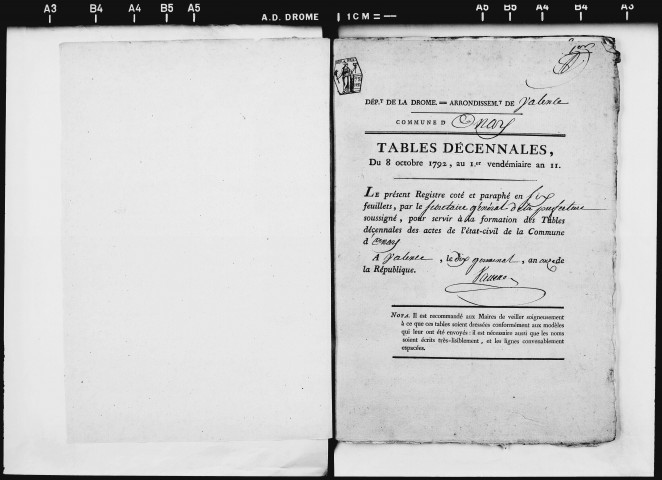 A3 B4 A4 B5 A5 A.D. DROME 1 CM = A5 B5 A4 B4 A3
DÉP.T DE LA DROME. = ARRONDISSEM.T DE Valence
COMMUNE D Onay
TABLES DÉCENNALES,
Du 8 octobre 1792, au 1.er vendémiaire an 11.
LE présent Registre coté et paraphé en six
feuillets, par le secretaire général de la prefecture
soussigné, pour servir à la formation des Tables
décennales des actes de l'état-civil de la Commune
d'Onay
A Valence, le dix germinal, an onze de
la République.
NOTA. Il est recommandé aux Maires de veiller soigneusement
à ce que ces tables soient dressées conformément aux modèles
qui leur ont été envoyés : il est nécessaire aussi que les noms
soient écrits très-lisiblement, et les lignes convenablement
espacées.